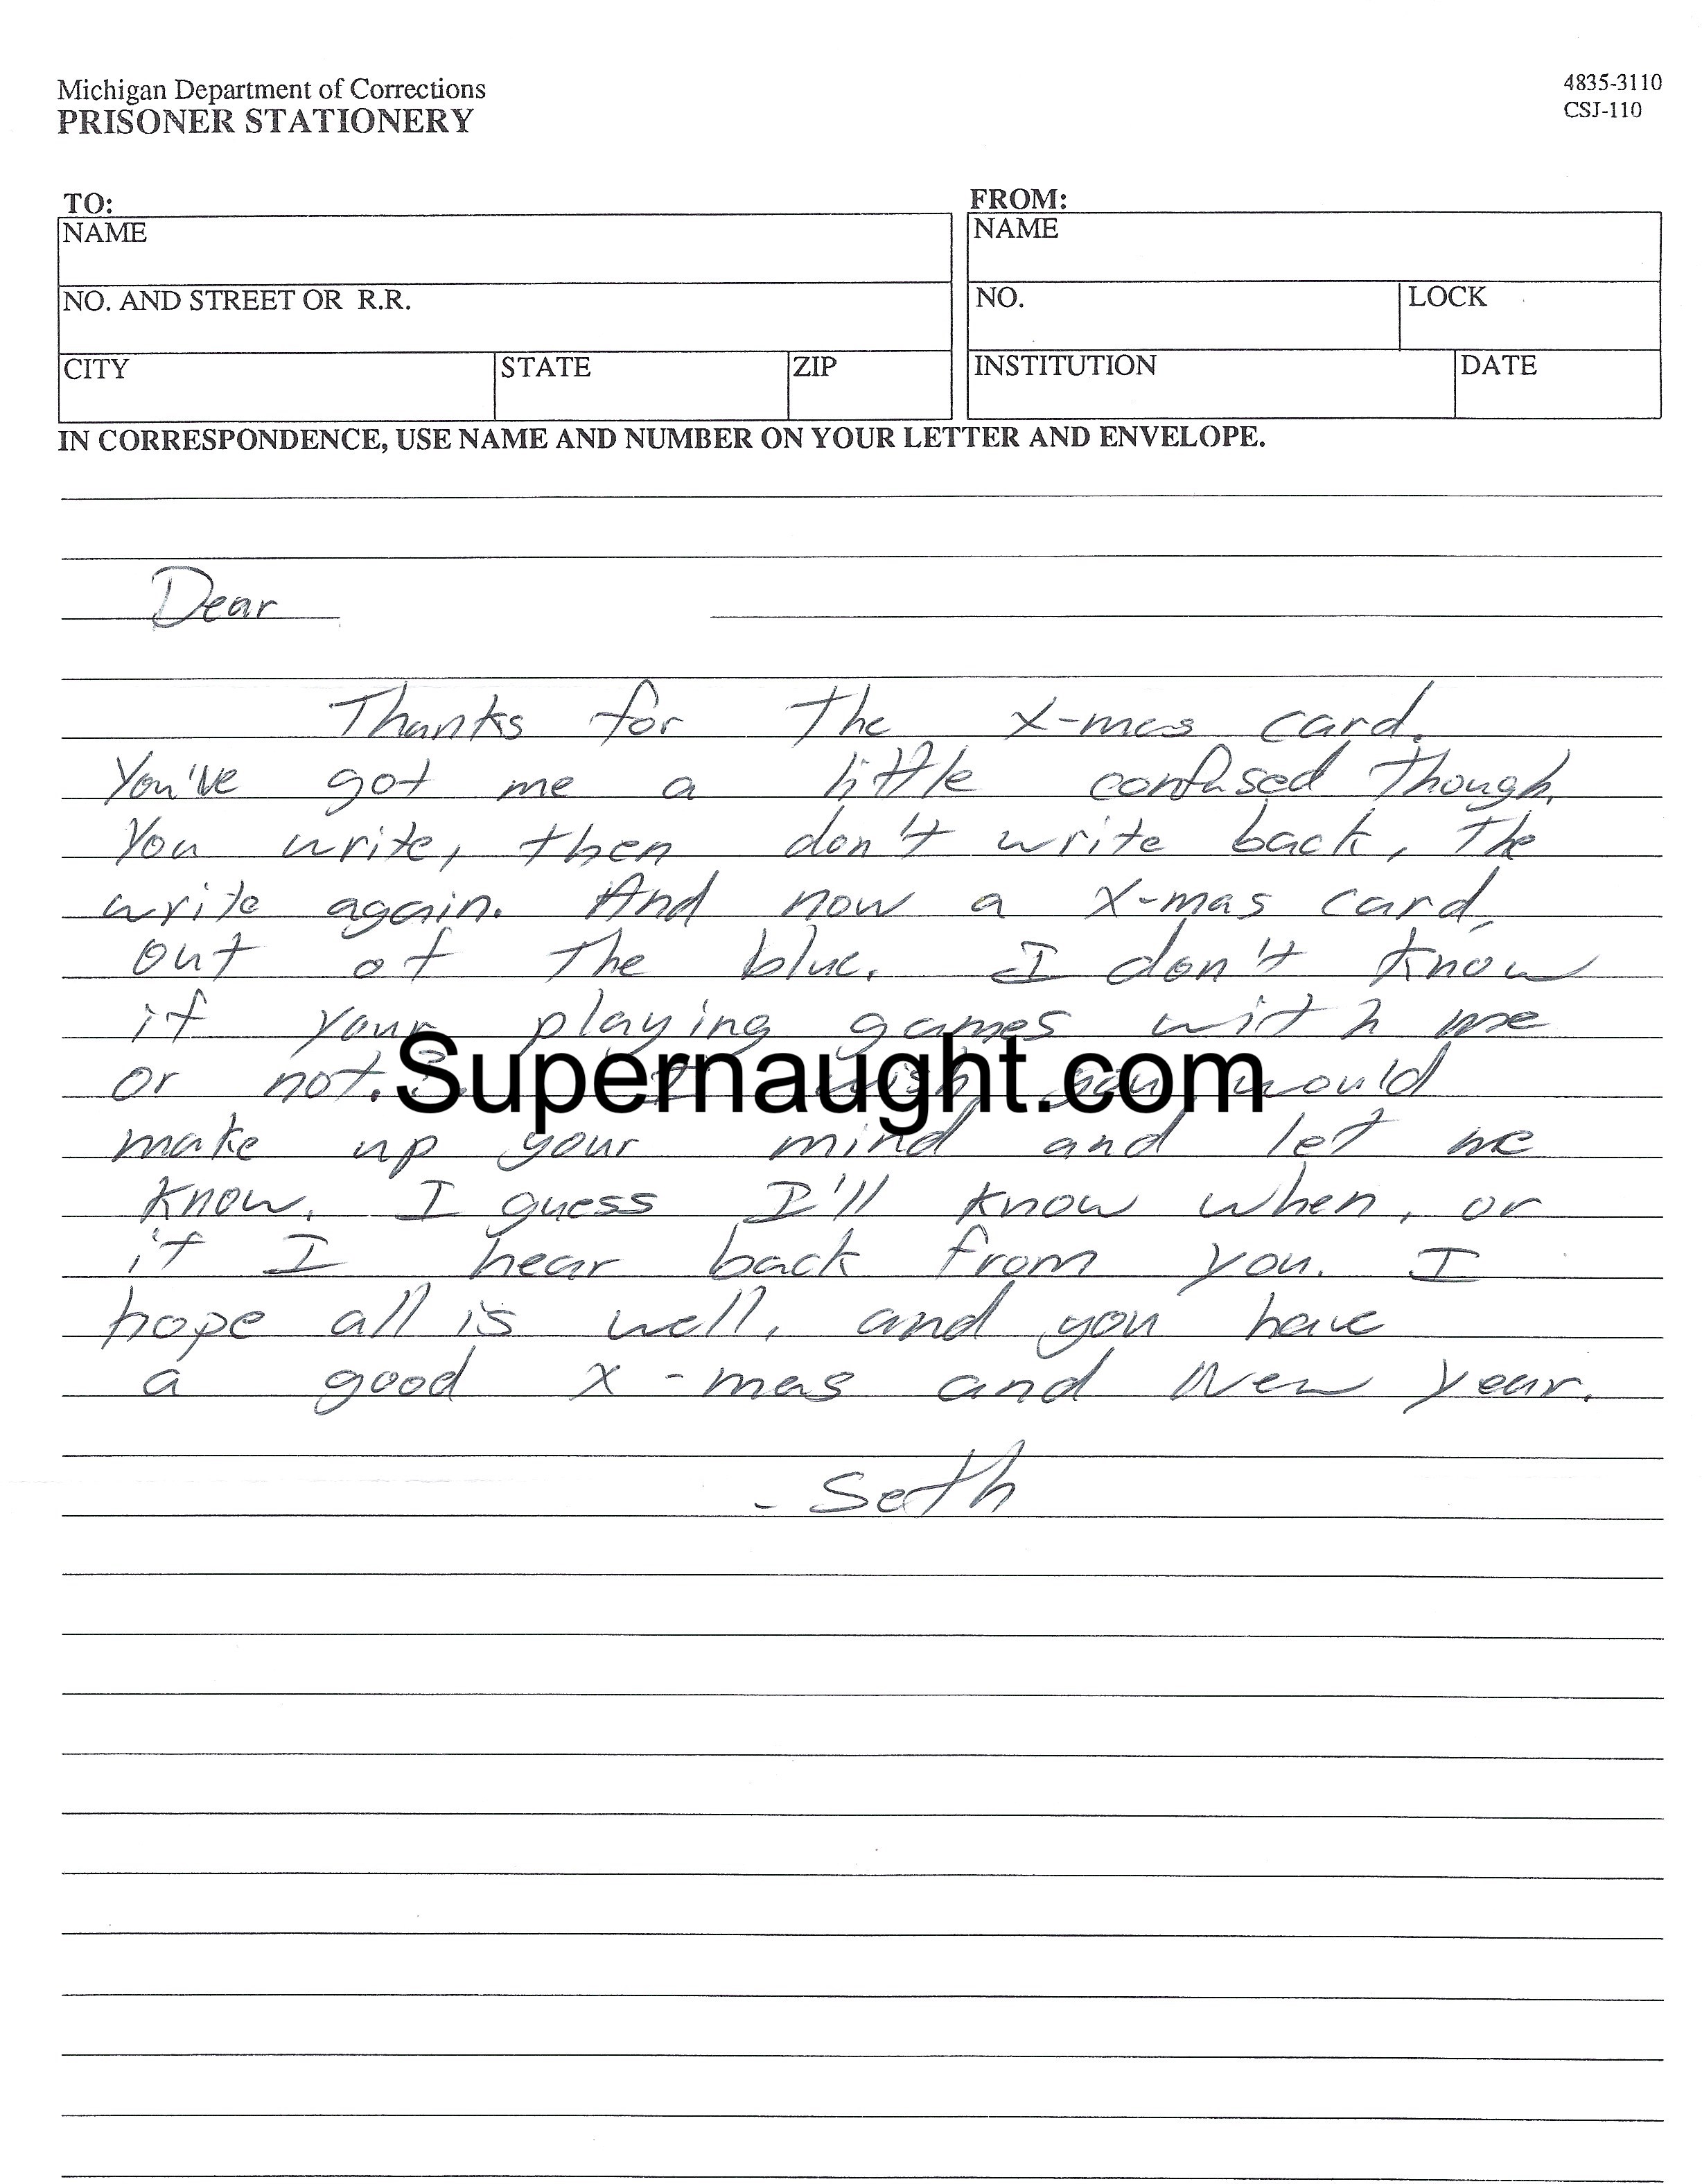 Michigan Department of Corrections
PRISONER STATIONERY
4835-3110
CSJ-110
TO:
NAME
NO. AND STREET OR R.R.
CITY STATE ZIP
FROM:
NAME
NO. LOCK
INSTITUTION DATE
IN CORRESPONDENCE, USE NAME AND NUMBER ON YOUR LETTER AND ENVELOPE.
Dear
Thanks for the X-mas card.
You've got me a little confused though.
You write, then don't write back, The
write again. And now a X-mas card,
out of the blue. I don't know
if your playing games with me
or not.?. I wish you would
Supernaught.com
make up your mind and let me
know. I guess I'll know when, or
if I hear back from you. I
hope all is well, and you have
a good X-mas and New Year.
- Seth